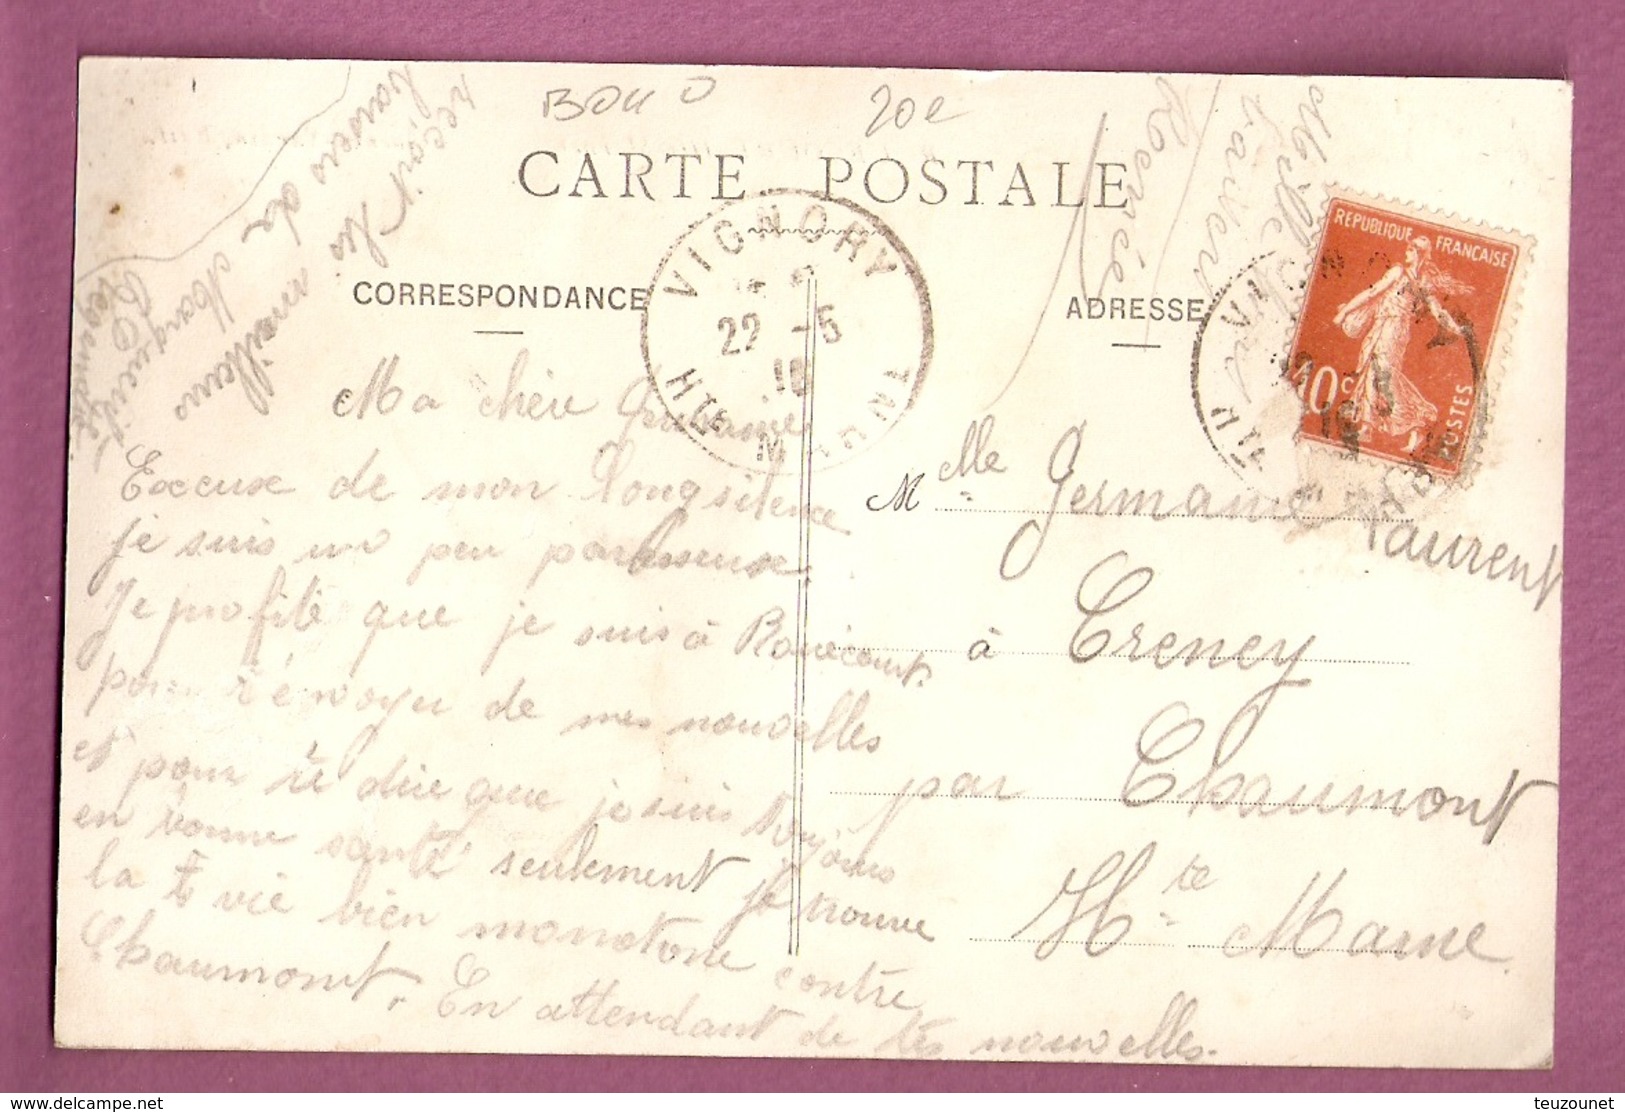 BOU O
20e
CARTE POSTALE
CORRESPONDANCE
ADRESSE
VIGNORY
22 -5
Hte M
REPUBLIQUE FRANÇAISE
10c
POSTES
Ma chère
Excuse de mon long silence
je suis un peu paresseuse.
Je profité que je suis à Rouécourt
pour t'envoyer de mes nouvelles
et pour te dire que je suis toujours
en bonne santé seulement je trouve
la vie bien monotone contre
Chaumont. En attendant de tes nouvelles.
reçoit les meilleurs
baisers de
Mlle Germaine Laurent
à Treney
par Chaumont
Hte Marne
teuzounet